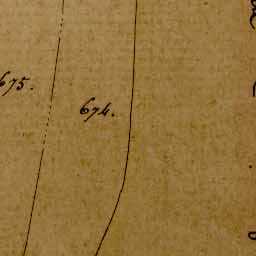 675.
674.